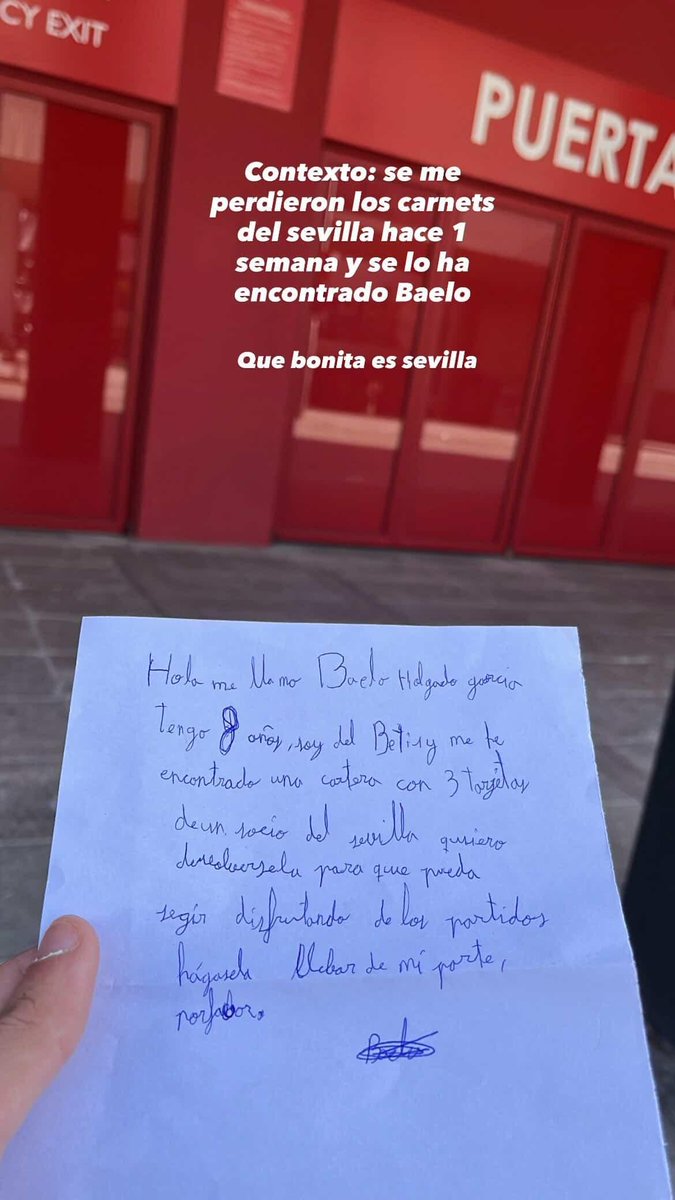 CY EXIT
PUERTA
Contexto: se me
perdieron los carnets
del sevilla hace 1
semana y se lo ha
encontrado Baelo
Que bonita es sevilla
Hola me llamo Baelo Holgado garcia
tengo 8 años, soy del Betis y me he
encontrado una cartera con 3 tarjetas
de un socio del sevilla quiero
devolversela para que pueda
segir disfrutando de los partidos
hágasela llebar de mi parte,
porfabor.